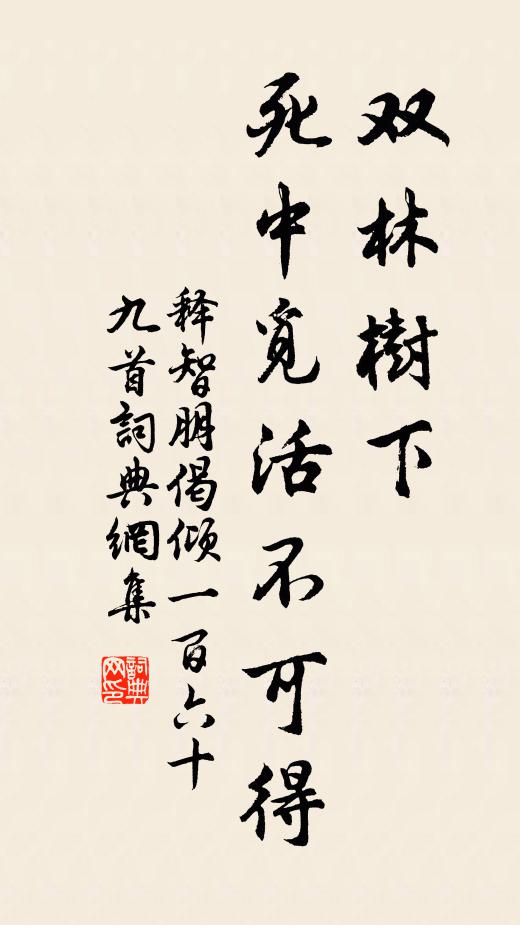 双林樹下
死中覓活不可得
释智朋偈倾一百六十
九首詞典網集
詞典网印